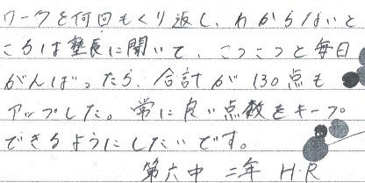 ワークを何回もくり返し、わからないと
ころは塾長に聞いて、こつこつと毎日
がんばったら、合計が130点も
アップした。常に良い点数をキープ
できるようにしたいです。
第六中 二年 H.R